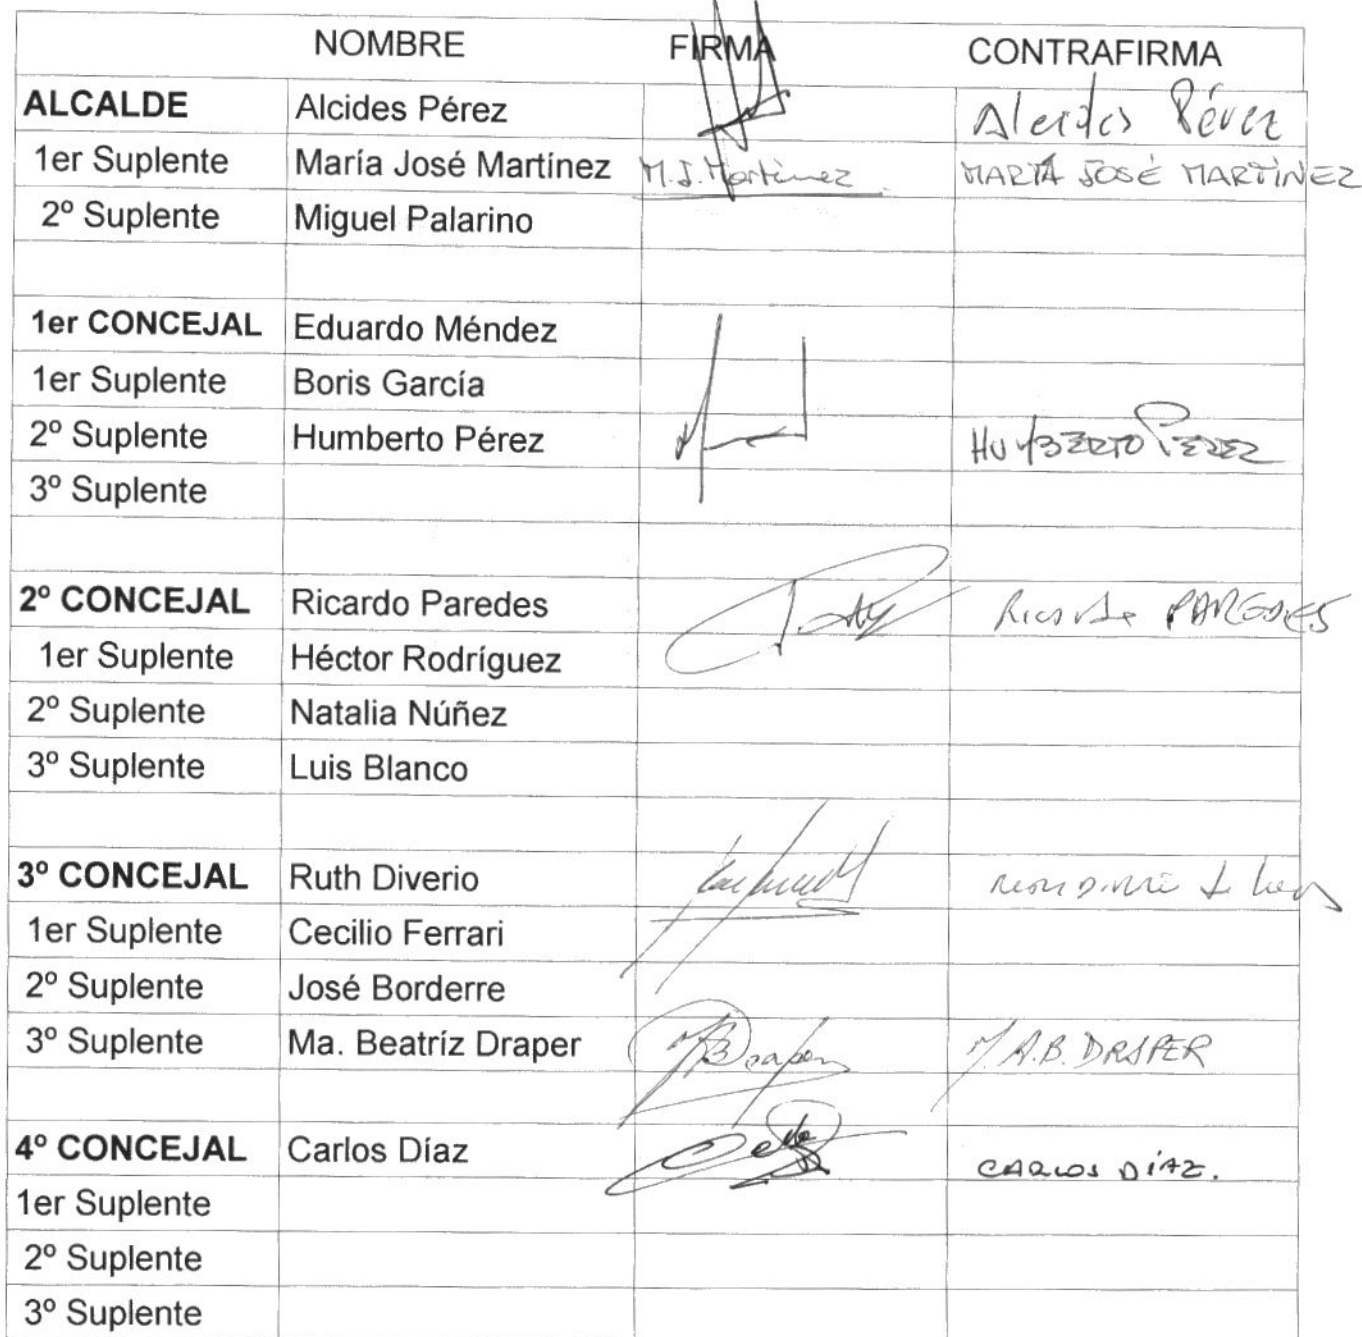 NOMBRE FIRMA CONTRAFIRMA
ALCALDE Alcides Pérez Alcides Pérez
1er Suplente María José Martínez M.J. Martínez MARIA JOSÉ MARTÍNEZ
2º Suplente Miguel Palarino
1er CONCEJAL Eduardo Méndez
1er Suplente Boris García
2º Suplente Humberto Pérez HUMBERTO PEREZ
3º Suplente
2º CONCEJAL Ricardo Paredes Ricardo PAREDES
1er Suplente Héctor Rodríguez
2º Suplente Natalia Núñez
3º Suplente Luis Blanco
3º CONCEJAL Ruth Diverio
1er Suplente Cecilio Ferrari
2º Suplente José Borderre
3º Suplente Ma. Beatríz Draper MBDraper M A.B. DRAPER
4º CONCEJAL Carlos Díaz CARLOS DíAZ.
1er Suplente
2º Suplente
3º Suplente